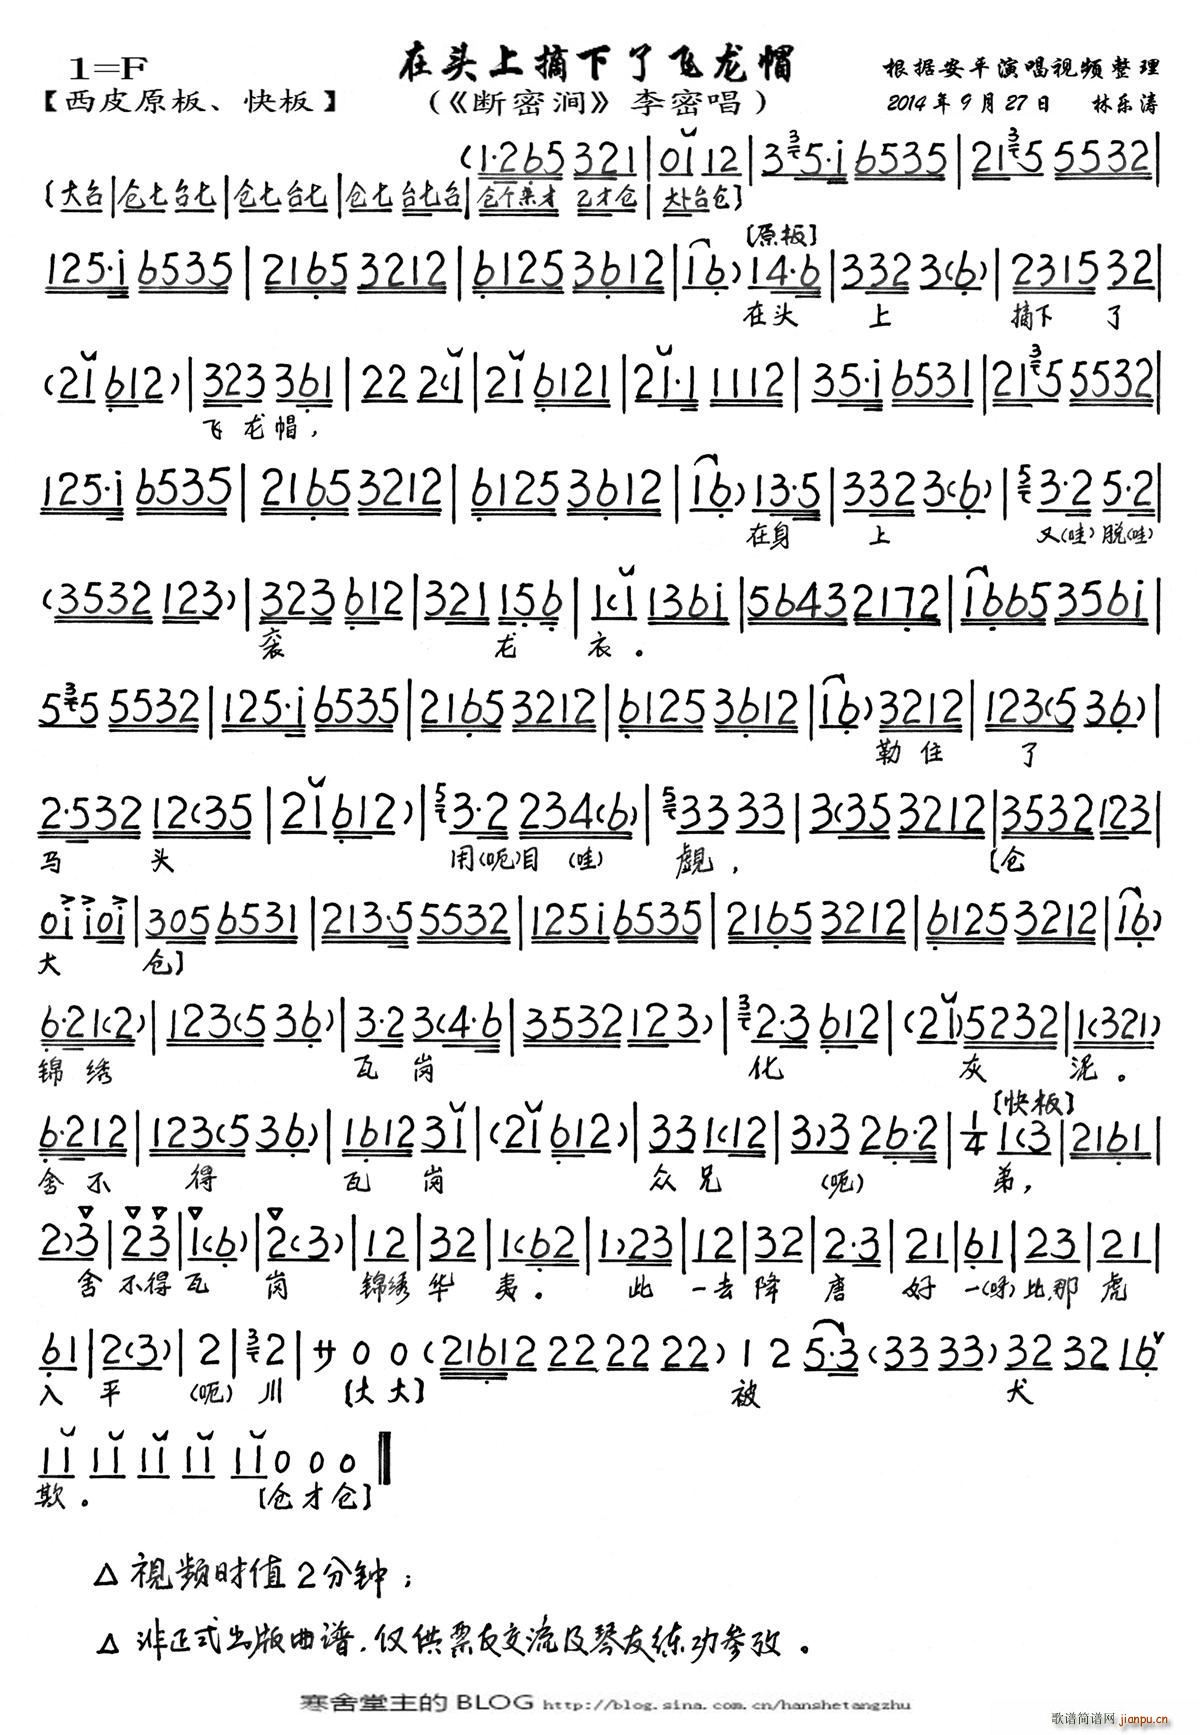 在头上摘下了飞龙帽
1=F
根据安平演唱视频整理
【西皮原板、快板】
(《断密涧》李密唱)
2014年9月27日 林乐涛
(1·265 321 | 0i 12 | 3 5·i 6535 | 21 5 5532 |
[大台 | 仓七台七 | 仓七台七 | 仓七台七台 | 仓个来才 乙才仓 | 大卜台仓]
[原板]
125·i 6535 | 2165 3212 | 6125 3612 | 16) 14·6 | 332 3(6) | 2315 32 |
在头 上 摘下 了
(2i 612) | 323 361 | 22 2(i | 2i 6121 | 2i·1 1112 | 35·i 6531 | 21 5 5532 |
飞龙帽，
125·i 6535 | 2165 3212 | 6125 3612 | 16) 13·5 | 332 3(6) | 3·2 5·2 |
在身 上 又(哇)脱(哇)
(3532 123) | 323 612 | 321 156 | 1(i 136i | 5643 2172 | 1665 356i |
衮 龙 衣。
5 5 5532 | 125·i 6535 | 2165 3212 | 6125 3612 | 16) 3212 | 123(5 36) |
勒住 了
2·532 12(35 | 2i 612) | 3·2 234(6) | 33 33 | 3(35 3212 | 3532 123 |
马 头 用(呃)目(哇) 觑， [仓
0i i0i | 305 6531 | 213·5 5532 | 125i 6535 | 2165 3212 | 6125 3212 | 16) |
大 仓]
6·21(2) | 123(5 36) | 3·2 3(4·6 | 3532 123) | 2·3 612 | (2i) 5232 | 1(321) |
锦绣 瓦岗 化 灰 泥。
[快板]
6·212 | 123(5 36) | 1612 3i | (2i 612) | 33 1(12 | 3)3 26·2 | 1/4 1(3 | 2161 |
舍不 得 瓦 岗 众兄 (呃) 弟，
2)3 | 23 | 1(6) | 2(3) | 12 | 32 | 1(62 | 1)23 | 12 | 32 | 2·3 | 21 | 61 | 23 | 21 |
舍不得瓦 岗 锦绣华 夷。 此 一去降 唐 好 一(呀)比，那虎
61 | 2(3) | 2 | 2 | サ 0 0 (21612 22 22 22) 1 2 5·3 (33 33) 32 32 16
入 平 (呃)川 [大大] 被 犬
1i 1i 1i 1i 1i 0 0 0
欺。 [仓才仓]
△ 视频时值2分钟；
△ 非正式出版曲谱，仅供票友交流及琴友练功参改。
寒舍堂主的BLOG http://blog.sina.com.cn/hanshetangzhu
歌谱简谱网
jianpu.cn